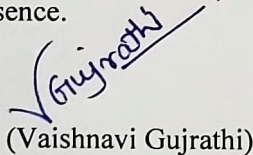 sence.
VGujrathi
(Vaishnavi Gujrathi)